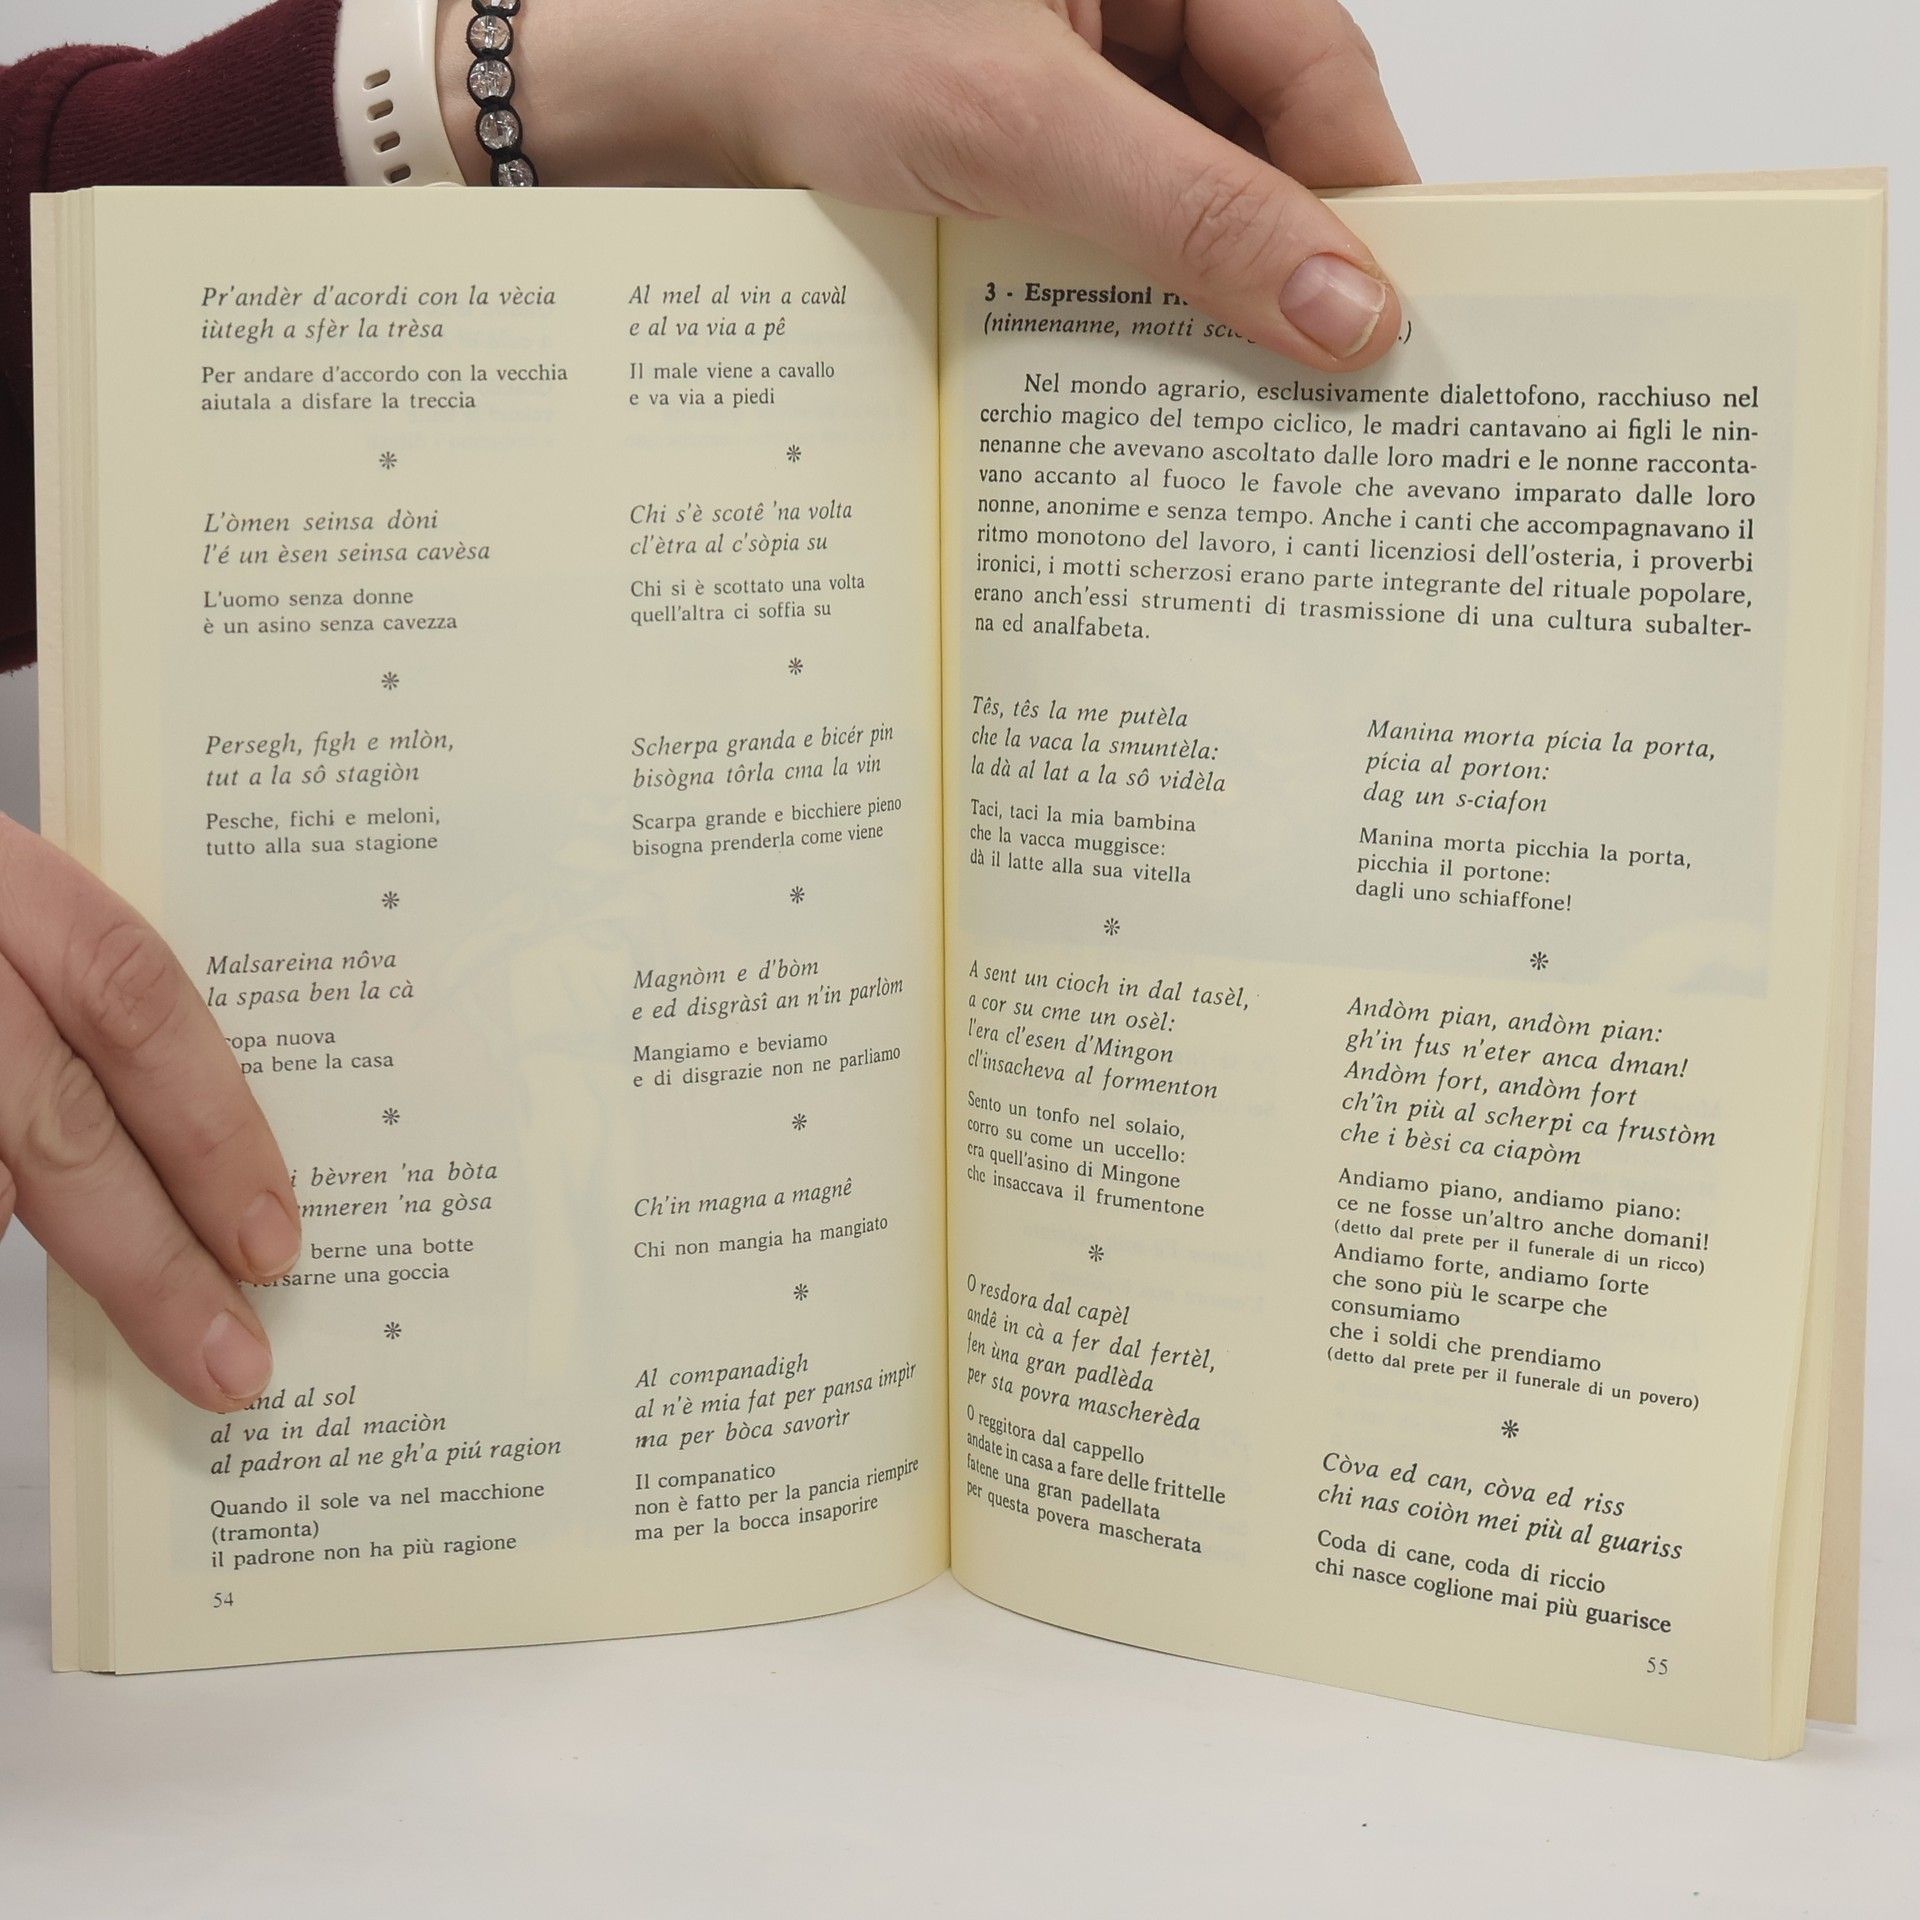 Pr'andèr d'acordi con la vècia
iùtegh a sfèr la trèsa
Per andare d'accordo con la vecchia
aiutala a disfare la treccia
❊
L'òmen seinsa dòni
l'é un èsen seinsa cavèsa
L'uomo senza donne
è un asino senza cavezza
❊
Persegh, figh e mlòn,
tut a la sô stagiòn
Pesche, fichi e meloni,
tutto alla sua stagione
❊
Malsareina nôva
la spasa ben la cà
nuova
bene la casa
❊
bèvren 'na bòta
'na gòsa
berne una botte
una goccia
❊
al sol
al va in dal maciòn
al padron al ne gh'a piú ragion
Quando il sole va nel macchione
(tramonta)
il padrone non ha più ragione
54
Al mel al vin a cavàl
e al va via a pê
Il male viene a cavallo
e va via a piedi
❊
Chi s'è scotê 'na volta
cl'ètra al c'sòpia su
Chi si è scottato una volta
quell'altra ci soffia su
❊
Scherpa granda e bicér pin
bisògna tôrla cma la vin
Scarpa grande e bicchiere pieno
bisogna prenderla come viene
❊
Magnòm e d'bòm
e ed disgràsî an n'in parlòm
Mangiamo e beviamo
e di disgrazie non ne parliamo
❊
Ch'in magna a magnê
Chi non mangia ha mangiato
❊
Al companadigh
al n'è mia fat per pansa impìr
ma per bòca savorìr
Il companatico
non è fatto per la pancia riempire
ma per la bocca insaporire
3 - Espressioni
(ninnenanne, motti
Nel mondo agrario, esclusivamente dialettofono, racchiuso nel
cerchio magico del tempo ciclico, le madri cantavano ai figli le nin-
nenanne che avevano ascoltato dalle loro madri e le nonne racconta-
vano accanto al fuoco le favole che avevano imparato dalle loro
nonne, anonime e senza tempo. Anche i canti che accompagnavano il
ritmo monotono del lavoro, i canti licenziosi dell'osteria, i proverbi
ironici, i motti scherzosi erano parte integrante del rituale popolare,
erano anch'essi strumenti di trasmissione di una cultura subalter-
na ed analfabeta.
Tês, tês la me putèla
che la vaca la smuntèla:
la dà al lat a la sô vidèla
Taci, taci la mia bambina
che la vacca muggisce:
dà il latte alla sua vitella
❊
A sent un cioch in dal tasèl,
a cor su cme un osèl:
l'era cl'esen d'Mingon
cl'insacheva al formenton
Sento un tonfo nel solaio,
corro su come un uccello:
era quell'asino di Mingone
che insaccava il frumentone
❊
O resdora dal capèl
andê in cà a fer dal fertèl,
fen ùna gran padlèda
per sta povra mascherèda
O reggitora dal cappello
andate in casa a fare delle frittelle
fatene una gran padellata
per questa povera mascherata
Manina morta pícia la porta,
pícia al porton:
dag un s-ciafon
Manina morta picchia la porta,
picchia il portone:
dagli uno schiaffone!
❊
Andòm pian, andòm pian:
gh'in fus n'eter anca dman!
Andòm fort, andòm fort
ch'în più al scherpi ca frustòm
che i bèsi ca ciapòm
Andiamo piano, andiamo piano:
ce ne fosse un'altro anche domani!
(detto dal prete per il funerale di un ricco)
Andiamo forte, andiamo forte
che sono più le scarpe che
consumiamo
che i soldi che prendiamo
(detto dal prete per il funerale di un povero)
❊
Còva ed can, còva ed riss
chi nas coiòn mei più al guariss
Coda di cane, coda di riccio
chi nasce coglione mai più guarisce
55